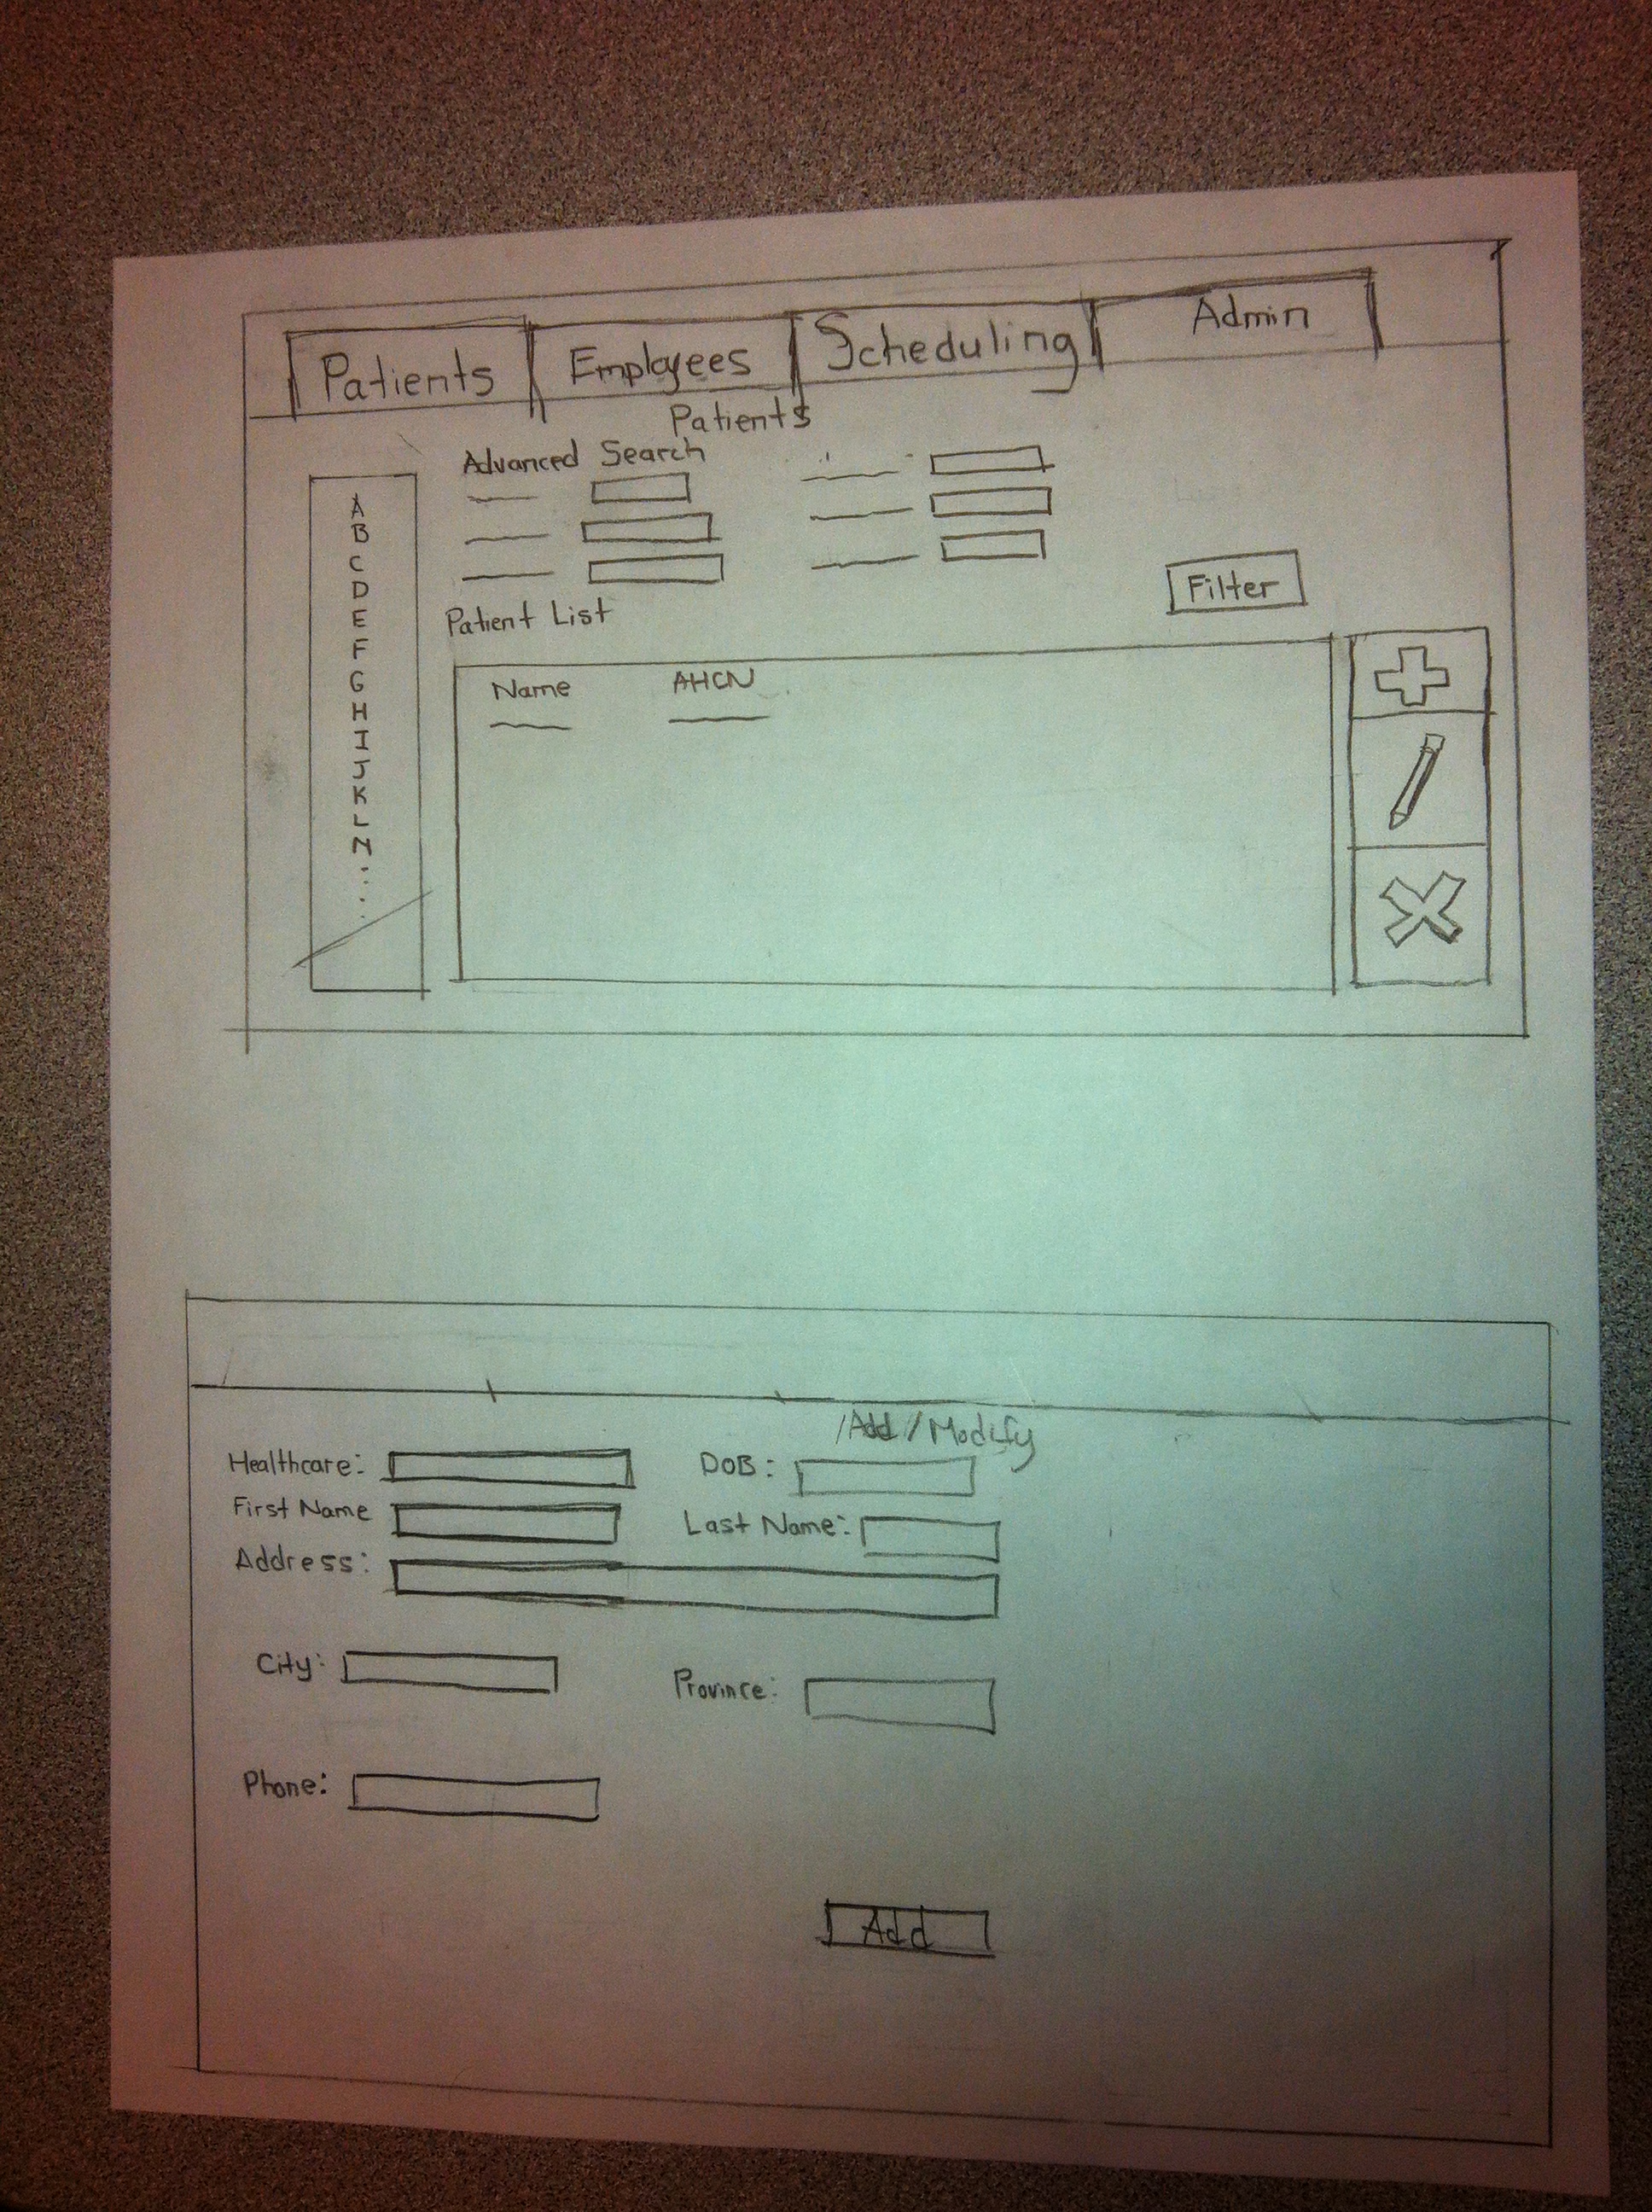 Patients Employees Scheduling Admin
Patients
Advanced Search
Filter
Patient List
Name AHCN
A
B
C
D
E
F
G
H
I
J
K
L
N
/Add/Modify
Healthcare: DOB:
First Name Last Name:
Address:
City: Province:
Phone:
Add